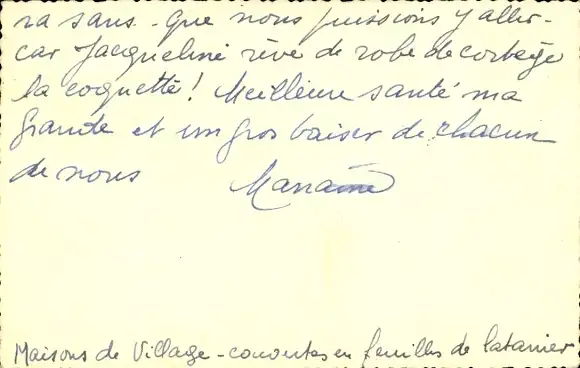 ra sans - que nous puissions y aller -
car Jacqueline rêve de robe de cortège
la coquette! Meilleure santé ma
grande et un gros baiser de chacun
de nous
Maisons de Village - couvertes en feuilles de latanier